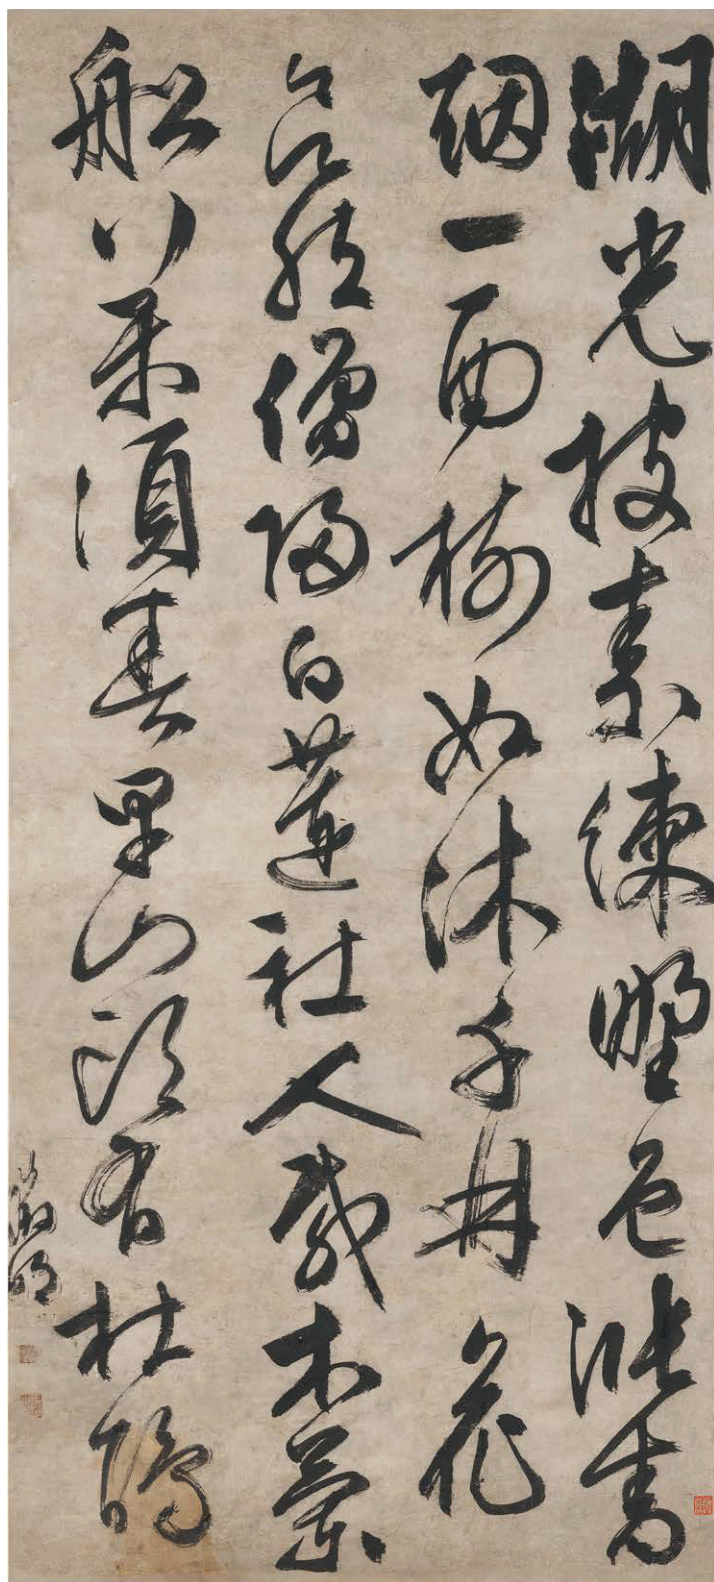 湖光披素練野色漲青
烟一雨樹如沐千林花
欲然僧歸白蓮社人載木蘭
船行樂須春早山頭有杜鵑
徵明